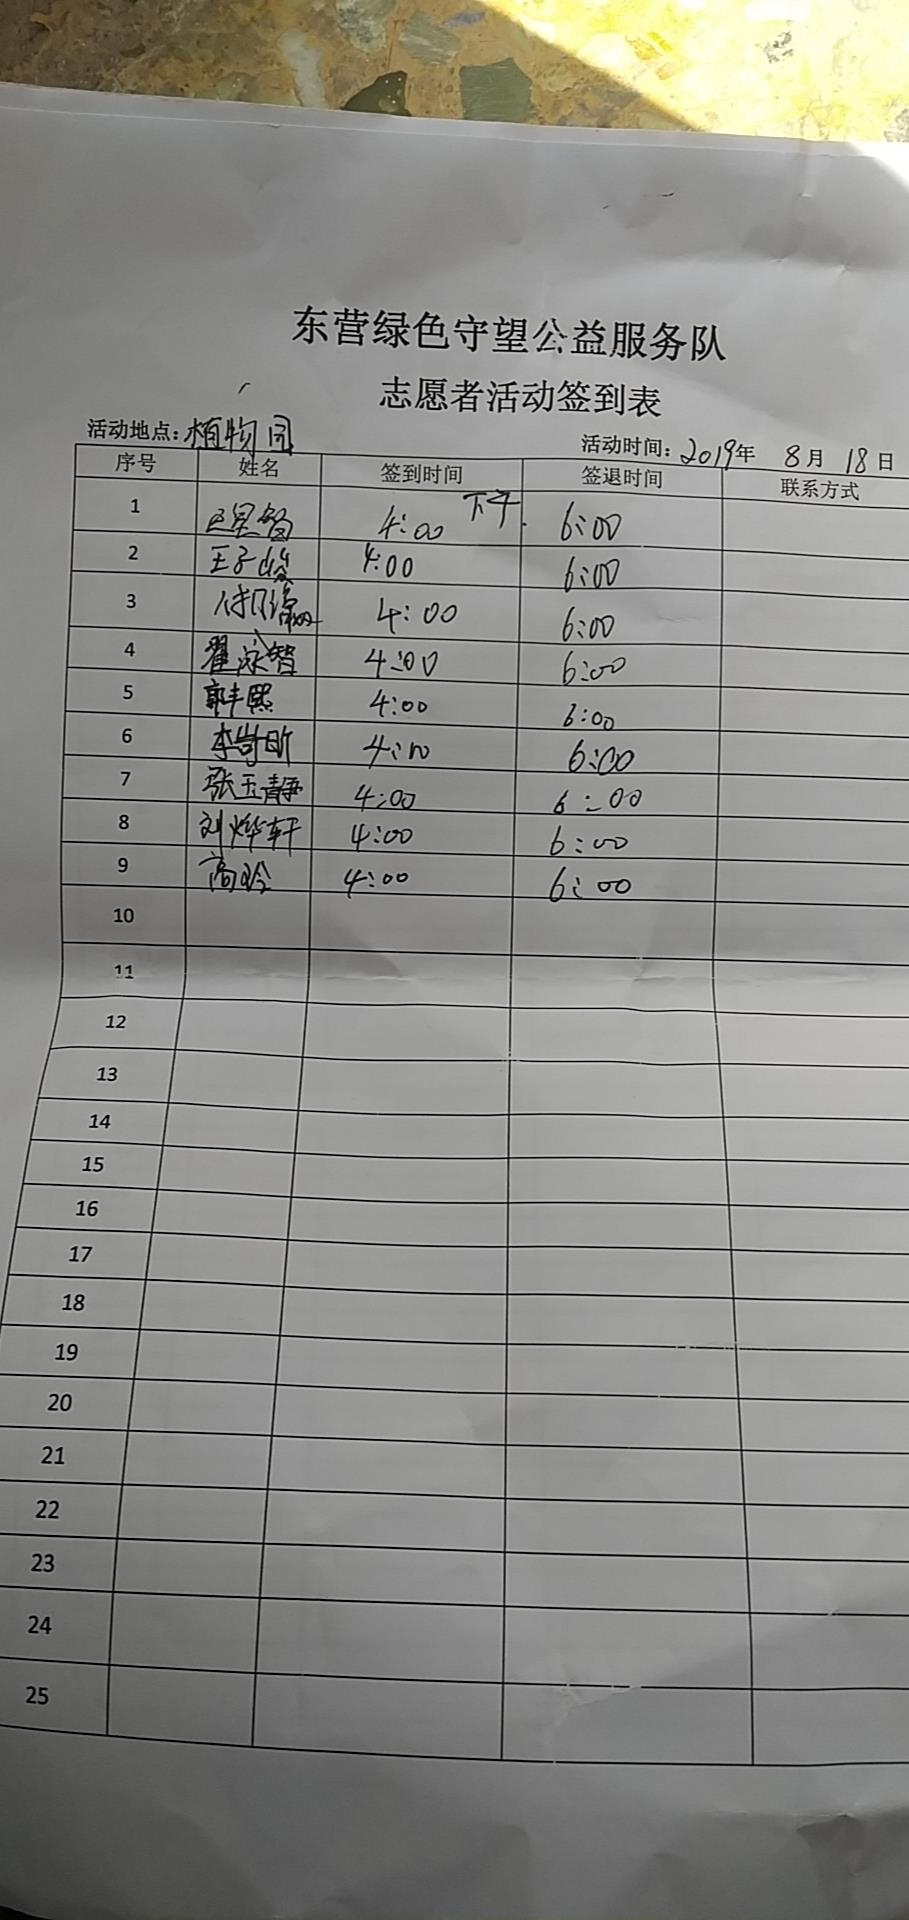 东营绿色守望公益服务队
志愿者活动签到表
活动地点：植物园 活动时间：2019年 8月 18日
序号 姓名 签到时间 签退时间 联系方式
1 4:00 下午 6:00
2 王子峻 4:00 6:00
3 4:00 6:00
4 翟泳智 4:00 6:00
5 郭丰熙 4:00 6:00
6 6:00
7 张玉静 4:00 6:00
8 刘烨轩 4:00 6:00
9 高玲 4:00 6:00
10
11
12
13
14
15
16
17
18
19
20
21
22
23
24
25